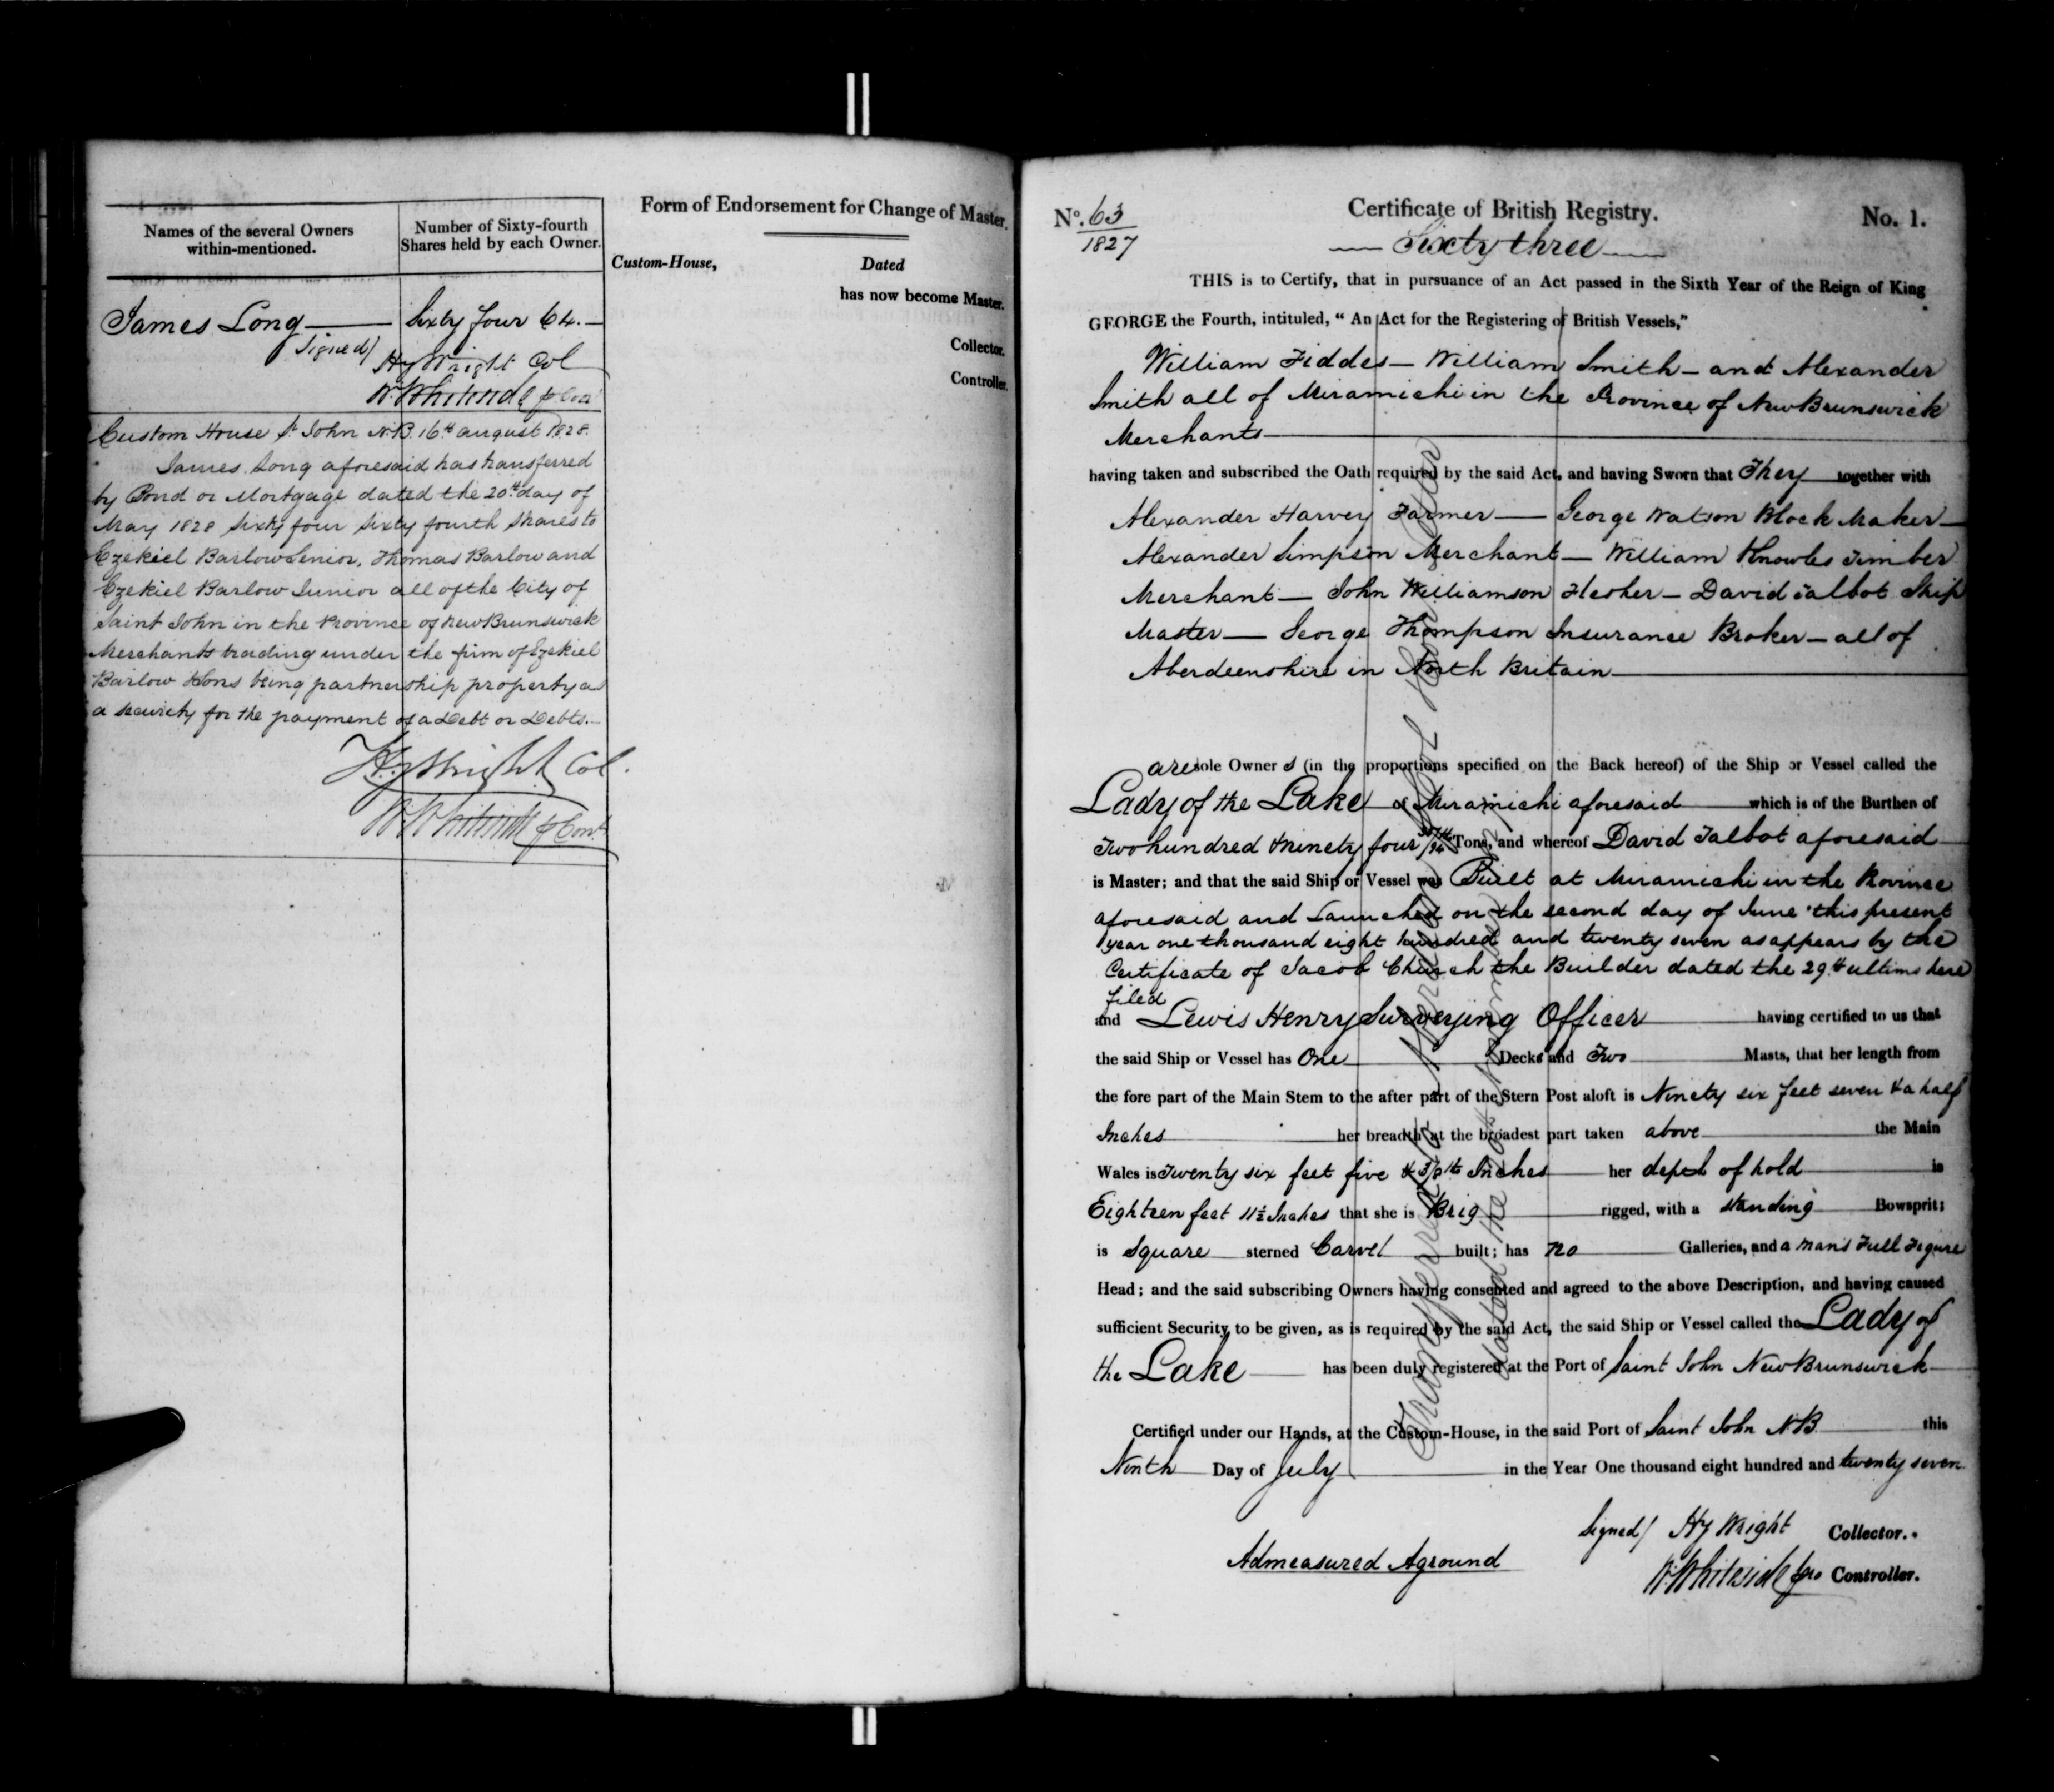 Names of the several Owners
within-mentioned.
Number of Sixty-fourth
Shares held by each Owner.
James Long
Sixty four 64.
Signed/
Hy Wright Col
W Whiteside
Custom House St John N.B. 16th August 1828.
James Long aforesaid has transferred
by Bond or Mortgage dated the 20th day of
May 1828 Sixty four Sixty fourth Shares to
Ezekiel Barlow Senior, Thomas Barlow and
Ezekiel Barlow Junior all of the City of
Saint John in the Province of New Brunswick
Merchants trading under the firm of Ezekiel
Barlow & Sons being partnership property as
a security for the payment of a Debt or Debts.
Hy Wright Col.
W Whiteside
Form of Endorsement for Change of Master.
Custom-House, Dated
has now become Master.
Collector.
Controller.
No. 63
1827
Certificate of British Registry.
No. 1.
Sixty three
THIS is to Certify, that in pursuance of an Act passed in the Sixth Year of the Reign of King
GEORGE the Fourth, intituled, “ An Act for the Registering of British Vessels,”
William Fiddes — William Smith — and Alexander
Smith all of Miramichi in the Province of New Brunswick
Merchants
having taken and subscribed the Oath required by the said Act, and having Sworn that They together with
Alexander Harvey Farmer — George Watson Block Maker —
Alexander Simpson Merchant — William Knowles Timber
Merchant — John Williamson Flesher — David Talbot Ship
Master — George Thompson Insurance Broker — all of
Aberdeenshire in North Britain
are sole Owner s (in the proportions specified on the Back hereof) of the Ship or Vessel called the
Lady of the Lake of Miramichi aforesaid which is of the Burthen of
Two hundred & ninety four Tons, and whereof David Talbot aforesaid
is Master; and that the said Ship or Vessel was Built at Miramichi in the Province
aforesaid and Launched on the second day of June this present
year one thousand eight hundred and twenty seven as appears by the
Certificate of Jacob Church the Builder dated the 29th ultimo here
filed
and Lewis Henry Surveying Officer having certified to us that
the said Ship or Vessel has One Decks and Two Masts, that her length from
the fore part of the Main Stem to the after part of the Stern Post aloft is Ninety six feet seven & a half
Inches her breadth at the broadest part taken above the Main
Wales is Twenty six feet five & 3/8ths Inches her depth of hold is
Eighteen feet 11½ Inches that she is Brig rigged, with a standing Bowsprit;
is Square sterned Carvel built; has no Galleries, and a man's Full Figure
Head; and the said subscribing Owners having consented and agreed to the above Description, and having caused
sufficient Security to be given, as is required by the said Act, the said Ship or Vessel called the Lady of
the Lake has been duly registered at the Port of Saint John New Brunswick
Certified under our Hands, at the Custom-House, in the said Port of Saint John N.B. this
Ninth Day of July in the Year One thousand eight hundred and twenty seven
Signed/ Hy Wright Collector.
Admeasured Aground
W Whiteside Controller.